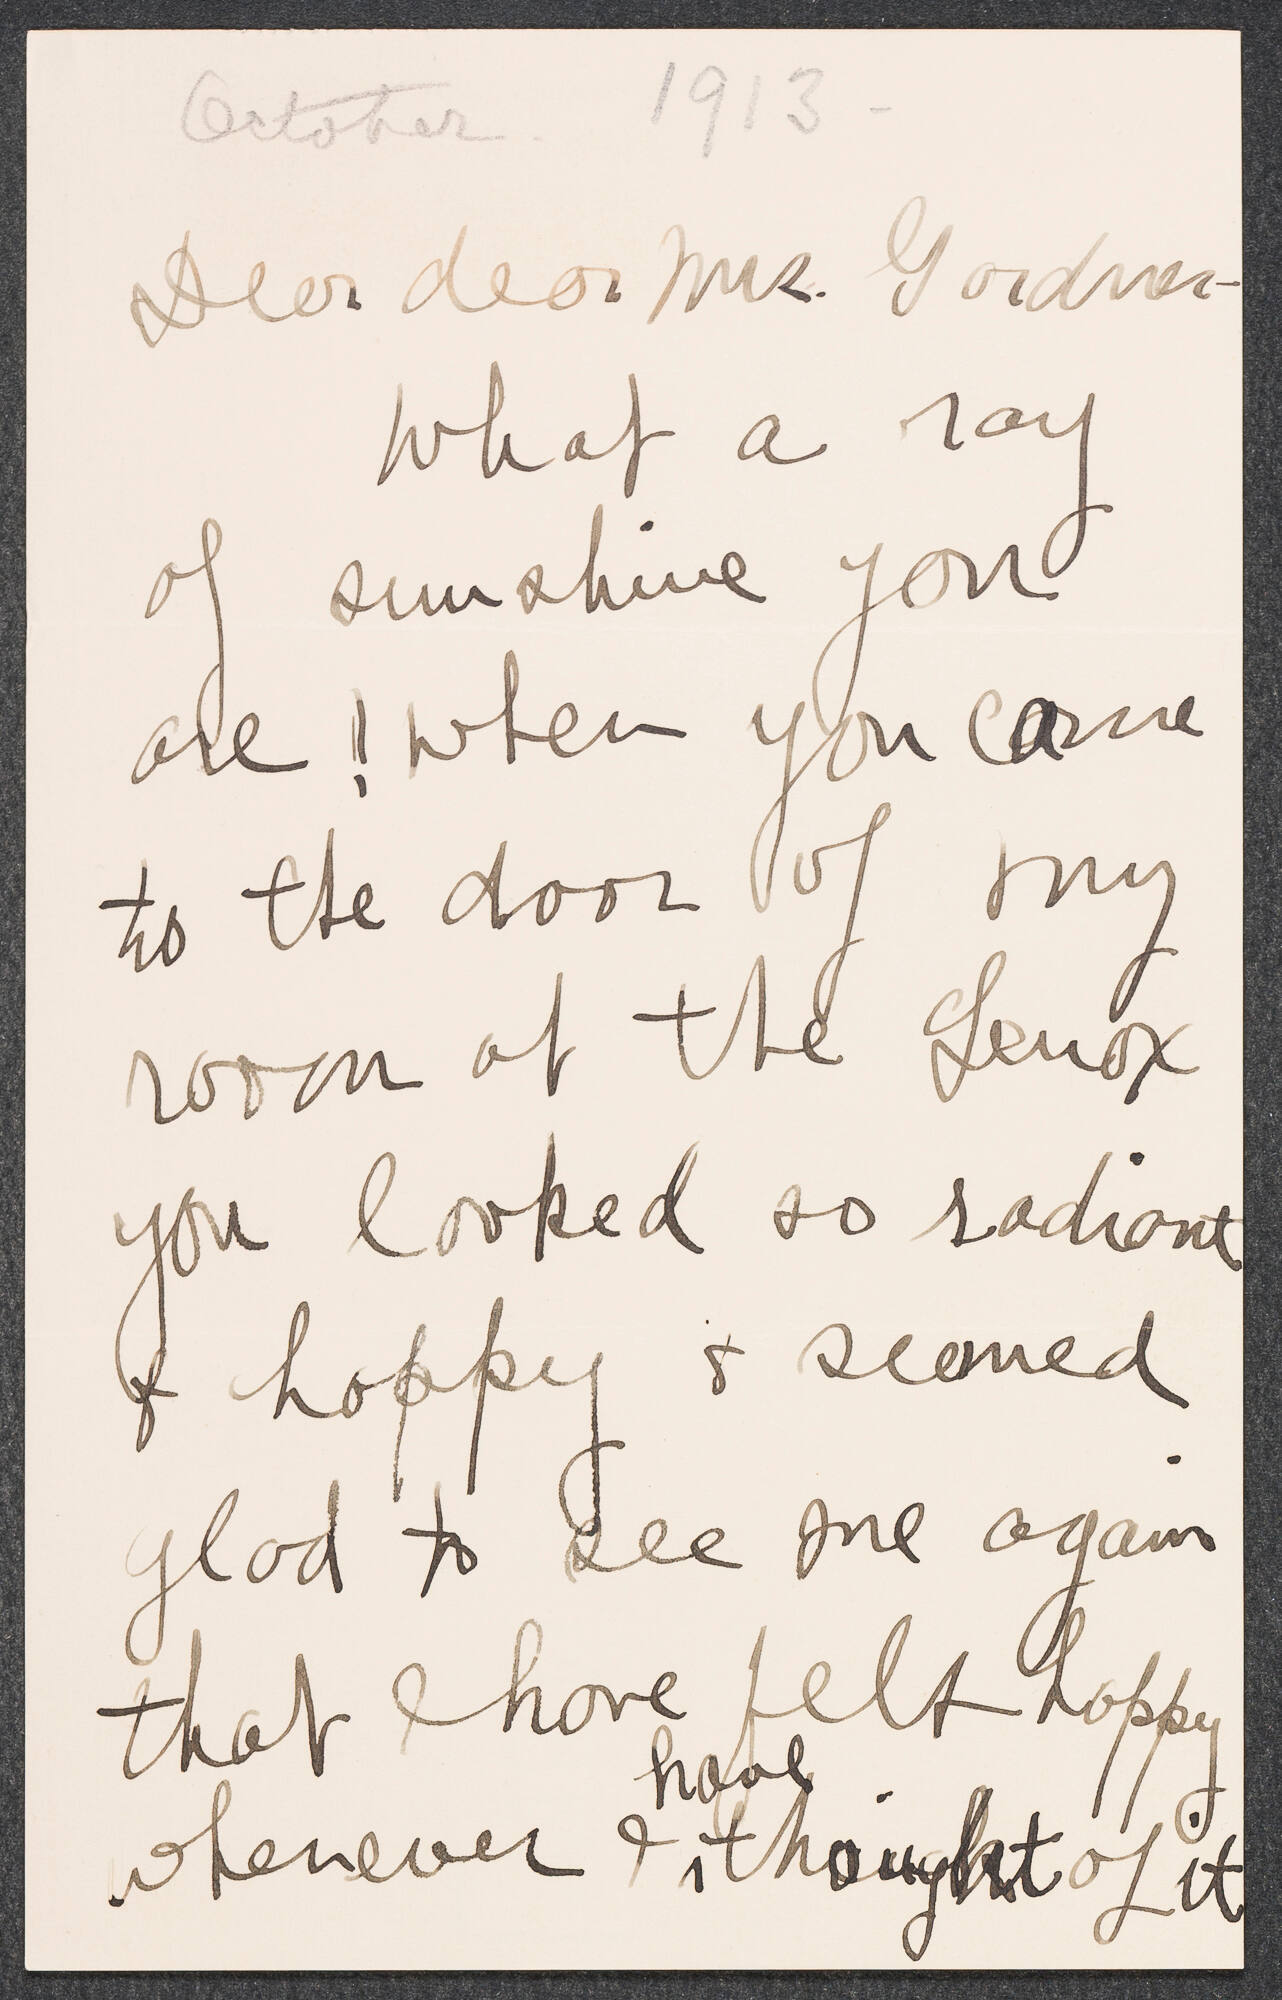 October. 1913 -
Dear dear Mrs. Gardner -
What a ray
of sunshine you
are! when you came
to the door of my
room at the Lenox
you looked so radiant
& happy & seemed
glad to see me again
that I have felt happy
have
whenever I thought of it